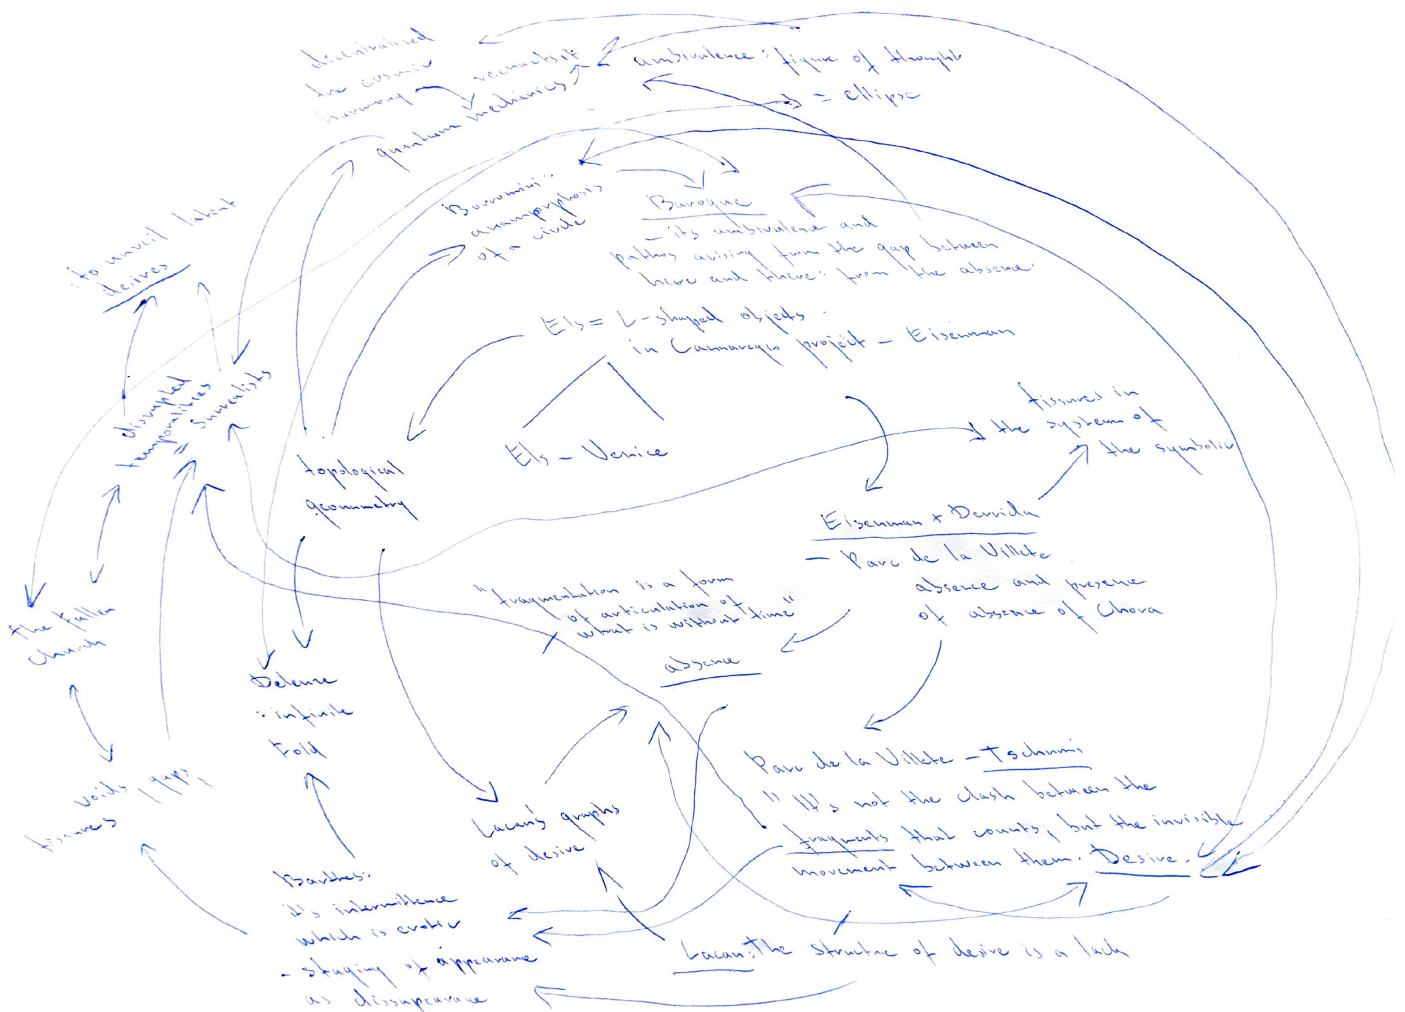 decentralised
the cosmic
harmony
quantum mechanics
ambivalence: figure of thought
= ellipse
Borromini:
anamorphosis
of a circle
Baroque
– its ambivalence and
pathos arising from the gap between
here and there: from the absence.
: to unveil latent
desires
Els = L-shaped objects
in Cannaregio project – Eisenman
Els – Venice
disrupted
temporalities
= Surrealists
topological
geommetry
fissures in
the system of
the symbolic
Eisenman + Derrida
– Parc de la Villete
absence and presence
of absence of Chora
"fragmentation is a form
of articulation of
what is without time"
absence
the fallen
church
Deleuze
: infinite
Fold
voids, gaps,
fissures
Lacan's graphs
of desire
Parc de la Villete – Tschumi
" It's not the clash between the
fragments that counts, but the invisible
movement between them. Desire.
Barthes:
it's intermittence
which is erotic
- staging of appearance
as dissapearance
Lacan: The structure of desire is a lack